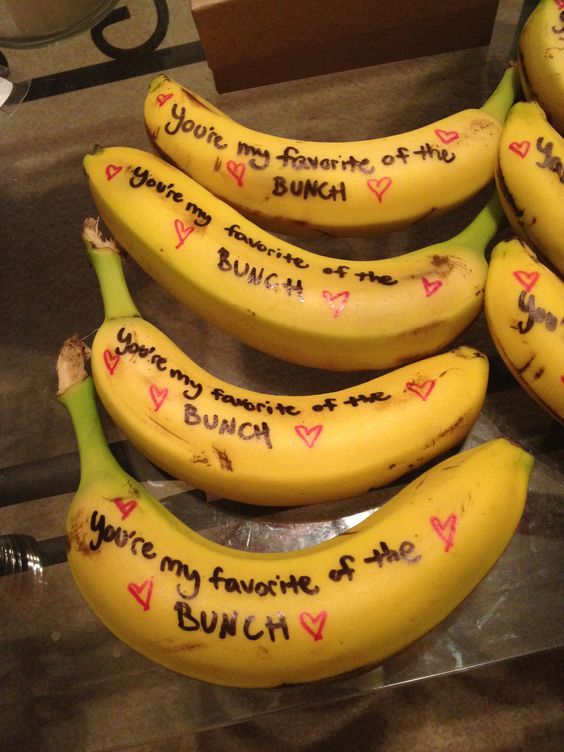 You're my favorite of the
BUNCH
You're my favorite of the
BUNCH
You're my favorite of the
BUNCH
You're my favorite of the
BUNCH